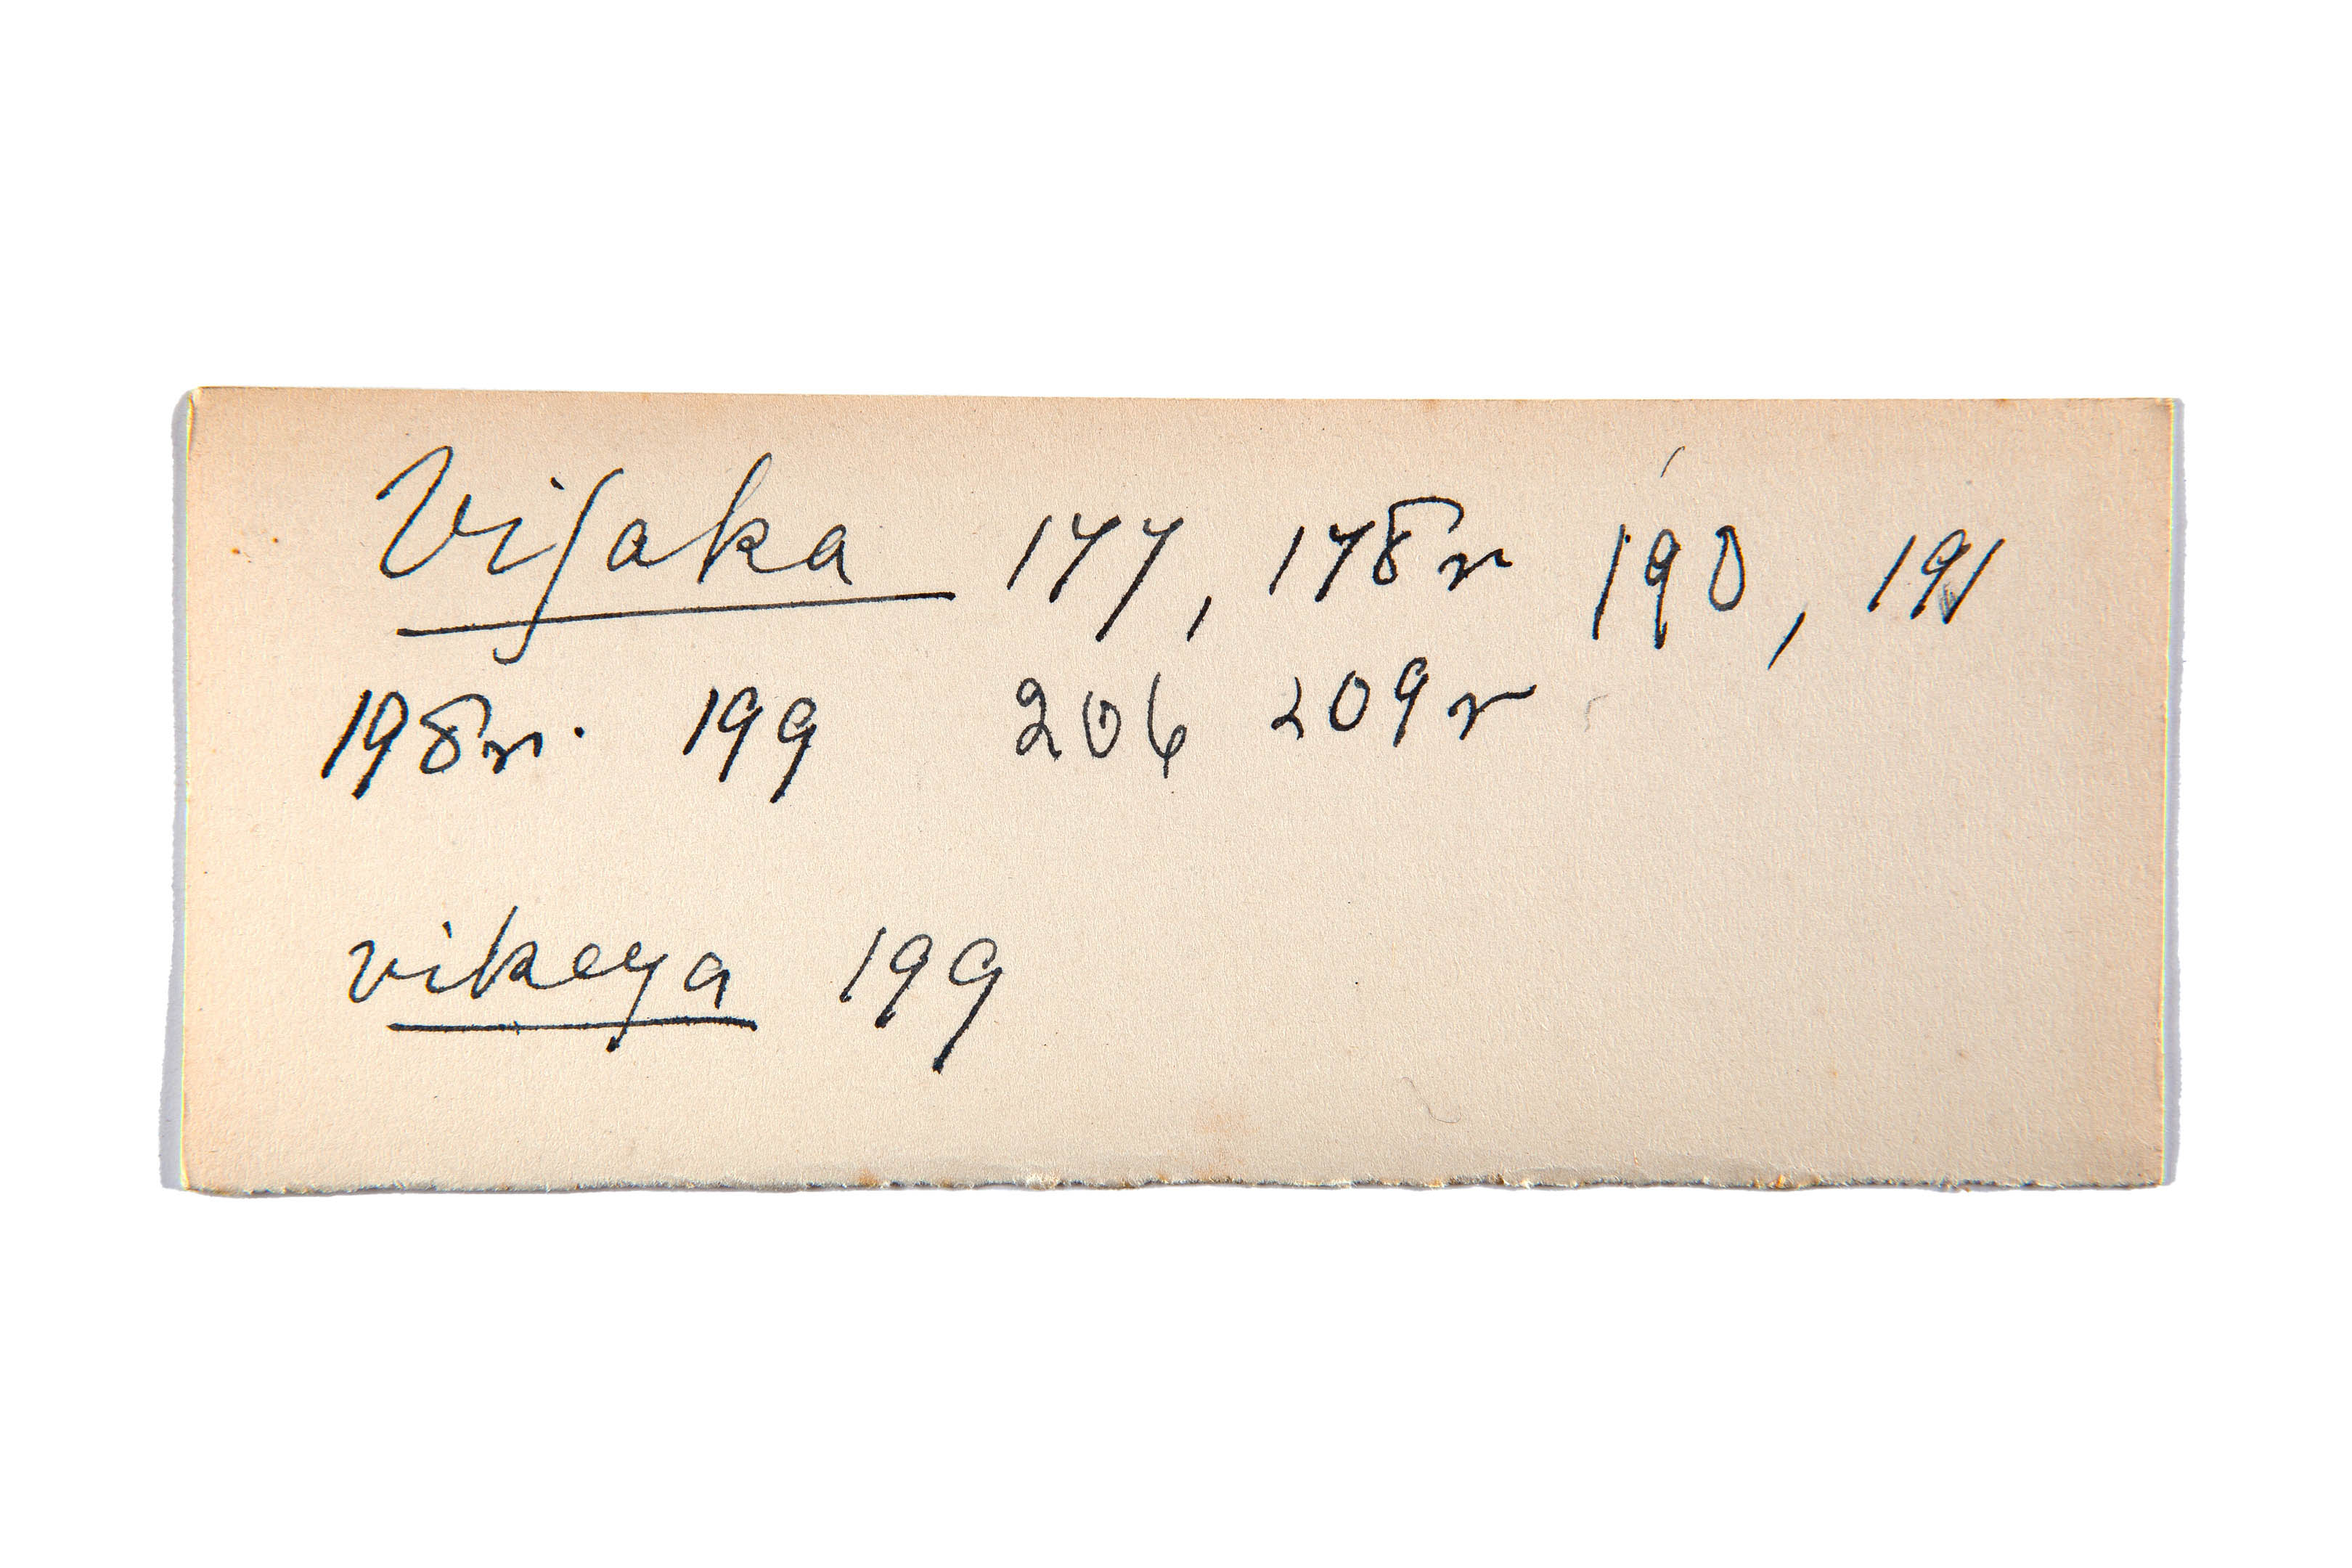 Viſaka 177, 178n 190, 191
198n. 199 206 209n
vikeya 199